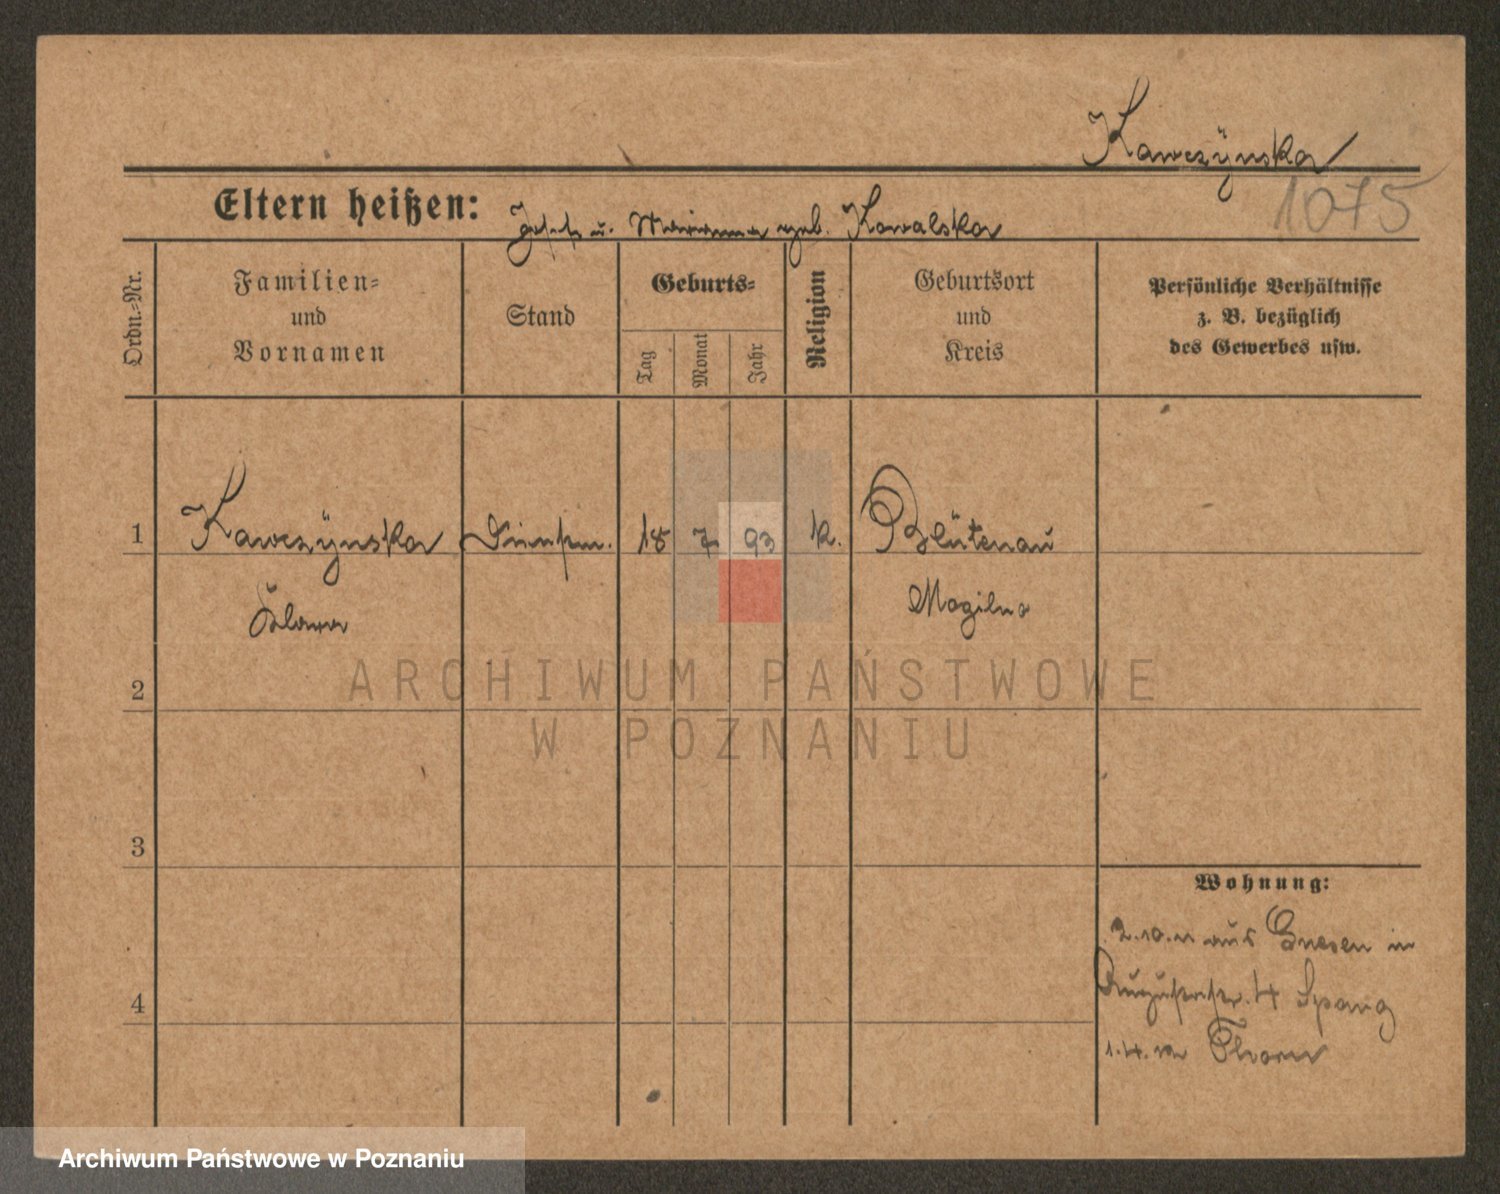 Kawczÿnska
1075
Eltern heißen: Josef u. Marianna geb. Kowalska
Ordn.=Nr.
Familien=
und
Vornamen
Stand
Geburts=
Tag
Monat
Jahr
Religion
Geburtsort
und
Kreis
Persönliche Verhältnisse
z. B. bezüglich
des Gewerbes usw.
1
Kawczÿnska 18 7 93 k. Blütenau
Mogilno
ARCHIWUM PAŃSTWOWE
W POZNANIU
2
3
4
Wohnung:
2.10.11 aus Gnesen in
Augustastr. 4 Spang
1.4. Thorn
Archiwum Państwowe w Poznaniu